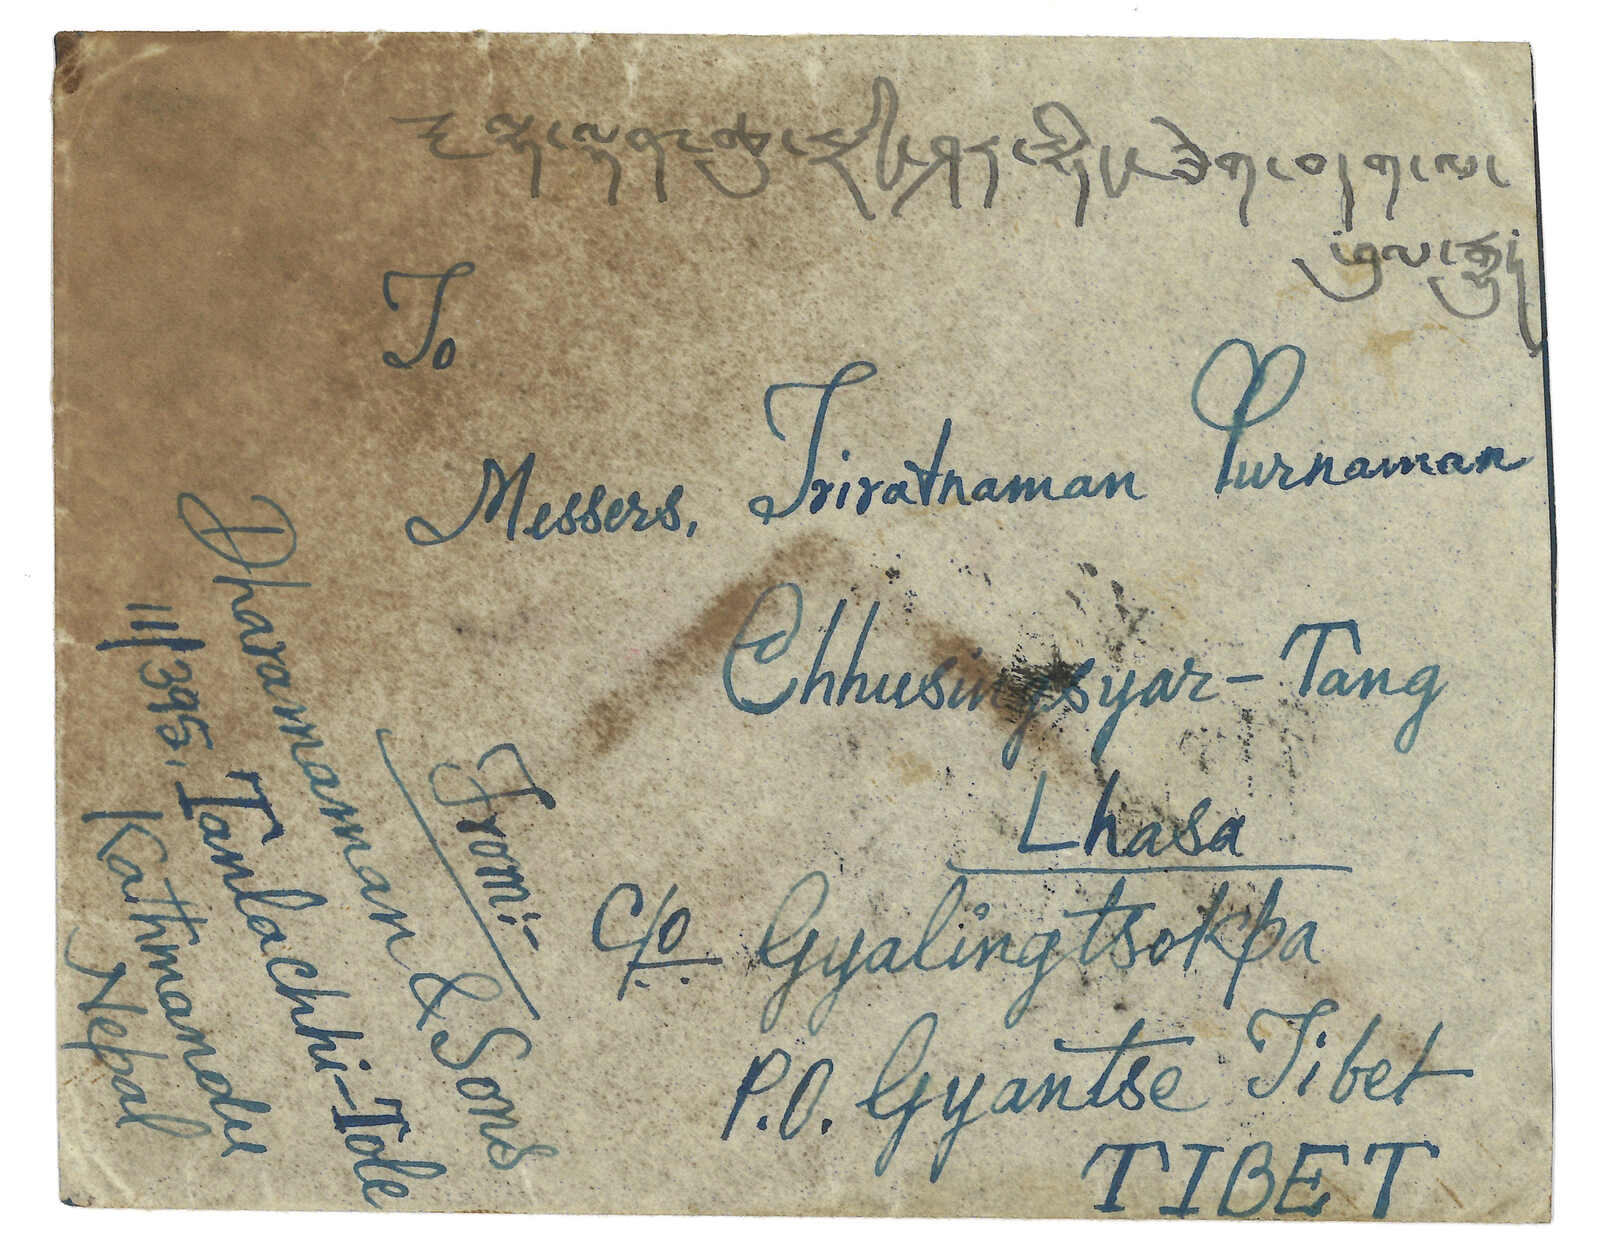 To
Messers, Triratnaman Purnaman
Chhusingsyar-Tang
Lhasa
C/o Gyalingtsokpa
P.O. Gyantse Tibet
TIBET
From:-
Dharamanman & Sons
11/395, Tanlachhi-Tole
Kathmandu
Nepal